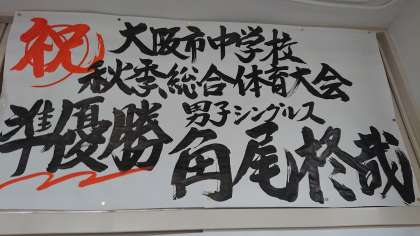 祝
大阪市中学校
秋季総合体育大会
男子シングルス
準優勝 角尾柊哉